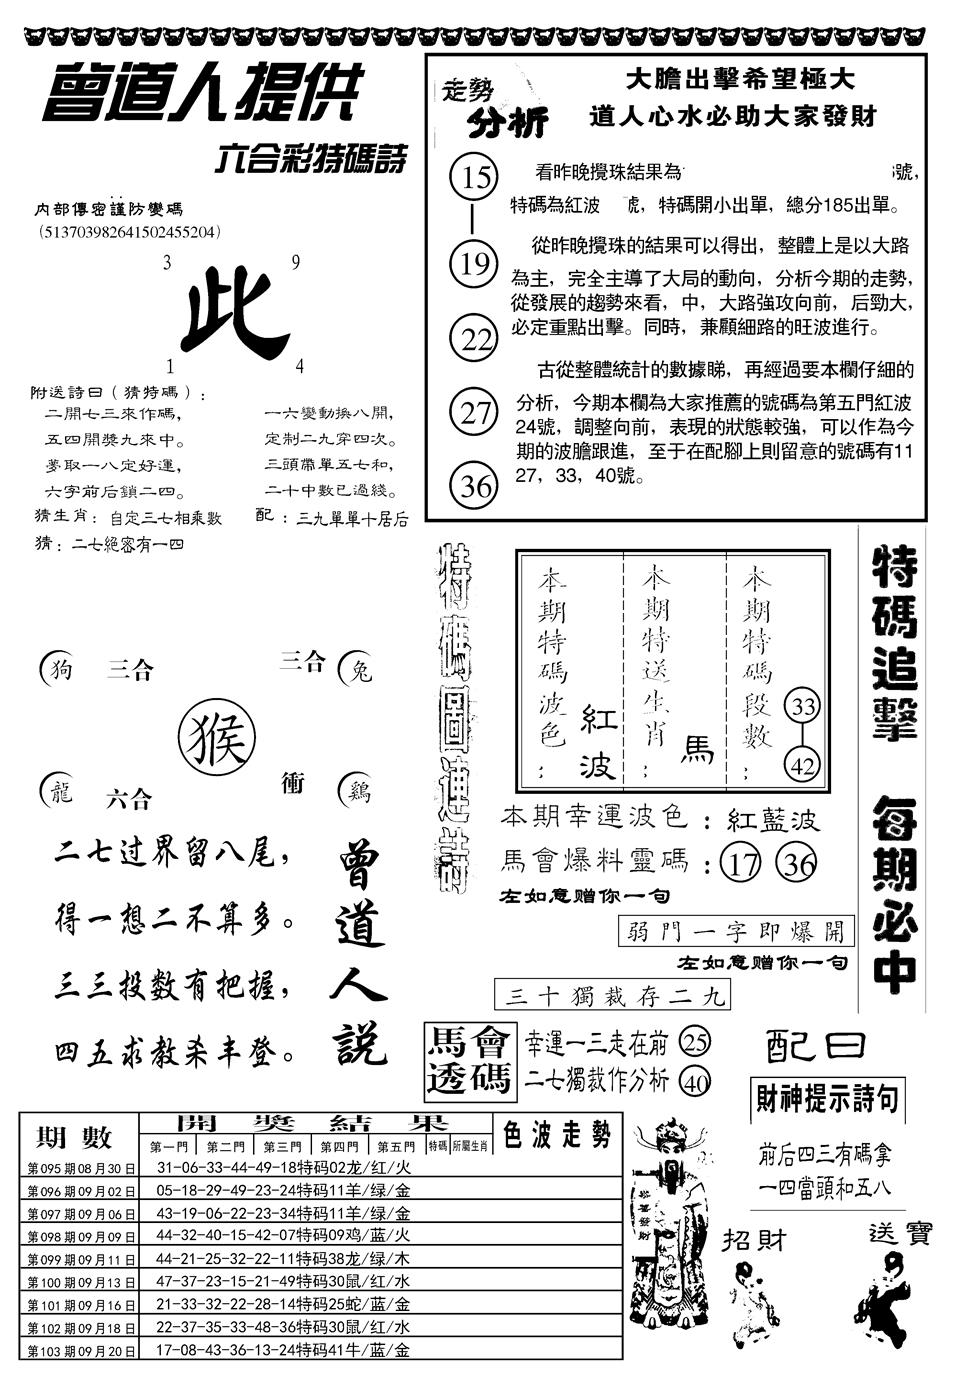 曾道人提供
六合彩特碼詩
内部傳密謹防變碼
（513703982641502455204）
3
9
此
1
4
附送詩曰（猜特碼）：
二開七三來作碼，
一六變動換八開，
五四開獎九來中。
定制二九穿四次。
夢取一八定好運，
三頭帶單五七和，
六字前后鎖二四。
二十中數已過綫。
猜生肖：自定三七相乘數
配：三九單單十居后
猜：二七絕密有一四
走勢
分析
大膽出擊希望極大
道人心水必助大家發財
15
19
22
27
36
看昨晚攪珠結果為
號，
特碼為紅波 號，特碼開小出單，總分185出單。
從昨晚攪珠的結果可以得出，整體上是以大路
為主，完全主導了大局的動向，分析今期的走勢，
從發展的趨勢來看，中，大路強攻向前，后勁大，
必定重點出擊。同時，兼顧細路的旺波進行。
古從整體統計的數據睇，再經過要本欄仔細的
分析，今期本欄為大家推薦的號碼為第五門紅波
24號，調整向前，表現的狀態較強，可以作為今
期的波膽跟進，至于在配腳上則留意的號碼有11
27，33，40號。
狗
三合
三合
兔
猴
龍
六合
衝
鷄
二七过界留八尾，
得一想二不算多。
三三投数有把握，
四五求教杀丰登。
曾道人説
特碼圖連詩
本期特碼波色：
紅波
本期特送生肖：
馬
本期特碼段數：
33
42
本期幸運波色：紅藍波
馬會爆料靈碼：17 36
左如意赠你一句
弱門一字即爆開
左如意赠你一句
三十獨裁存二九
特碼追擊 每期必中
馬會
透碼
幸運一三走在前 25
二七獨裁作分析 40
配曰
財神提示詩句
前后四三有碼拿
一四當頭和五八
招財
送寶
恭喜發財
期數
開獎結果
色波走勢
第一門 第二門 第三門 第四門 第五門 特碼 所屬生肖
第095期08月30日 31-06-33-44-49-18特码02龙/红/火
第096期09月02日 05-18-29-49-23-24特码11羊/绿/金
第097期09月06日 43-19-06-22-23-34特码11羊/绿/金
第098期09月09日 44-32-40-15-42-07特码09鸡/蓝/火
第099期09月11日 44-21-25-32-22-11特码38龙/绿/木
第100期09月13日 47-37-23-15-21-49特码30鼠/红/水
第101期09月16日 21-33-32-22-28-14特码25蛇/蓝/金
第102期09月18日 22-37-35-33-48-36特码30鼠/红/水
第103期09月20日 17-08-43-36-13-24特码41牛/蓝/金